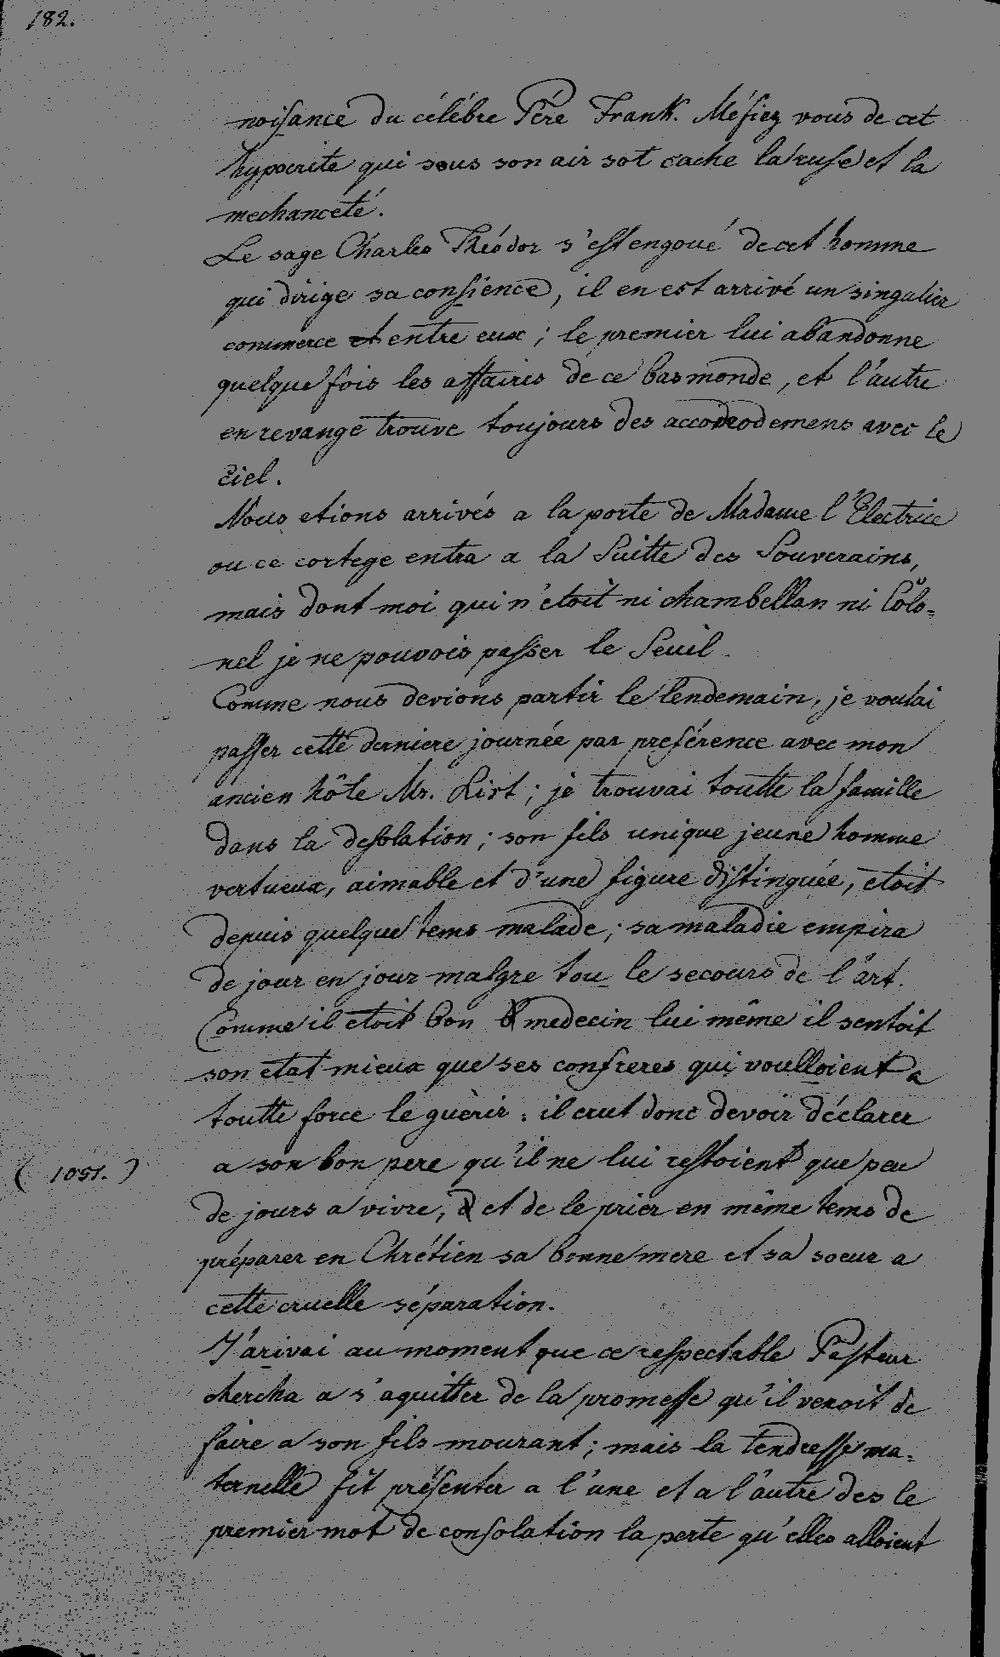 182.
noisance du célébre Péré Frank. Méfiez vous de cet
hypocrite qui sous son air sot cache la ruse et la
mechanceté.
Le sage Charles Théodor s'est engoué de cet homme
qui dirige sa consience, il en est arrivé un singulier
commerce et entre eux; le premier lui abandonne
quelque fois les affaires de ce bas monde, et l'autre
en revange trouve toujours des accomodemens avec le
ciel.
Nous etions arrivés a la porte de Madame l'Electrice
ou ce cortege entra a la Suitte des Souverains,
mais dont moi qui n'etoit ni chambellan ni Colo=
nel je ne pouvois passer le Seuil.
Comme nous devions partir le lendemain, je voulai
passer cette derniere journée par preférence avec mon
ancien hôte Mr. List; je trouvai toutte la famille
dans la desolation; son fils unique jeune homme
vertueux, aimable et d'une figure distinguée, etoit
depuis quelque tems malade; sa maladie empira
de jour en jour malgre tou le secours de l'art.
Comme il etoit bon medecin lui même il sentoit
son etat mieux que ses confreres qui voulloient a
toutte force le guèrir: il crut donc devoir déclarer
(1051.) a son bon pere qu'il ne lui restoient que peu
de jours a vivre, et de le prier en même tems de
préparer en Chrétien sa bonne mere et sa soeur a
cette cruelle séparation.
J'arivai au moment que ce respectable Pasteur
chercha a s'aquitter de la promesse qu'il venoit de
faire a son fils mourant; mais la tendresse ma=
ternelle fit présenter a l'une et a l'autre des le
premier mot de consolation la perte qu'elles alloient